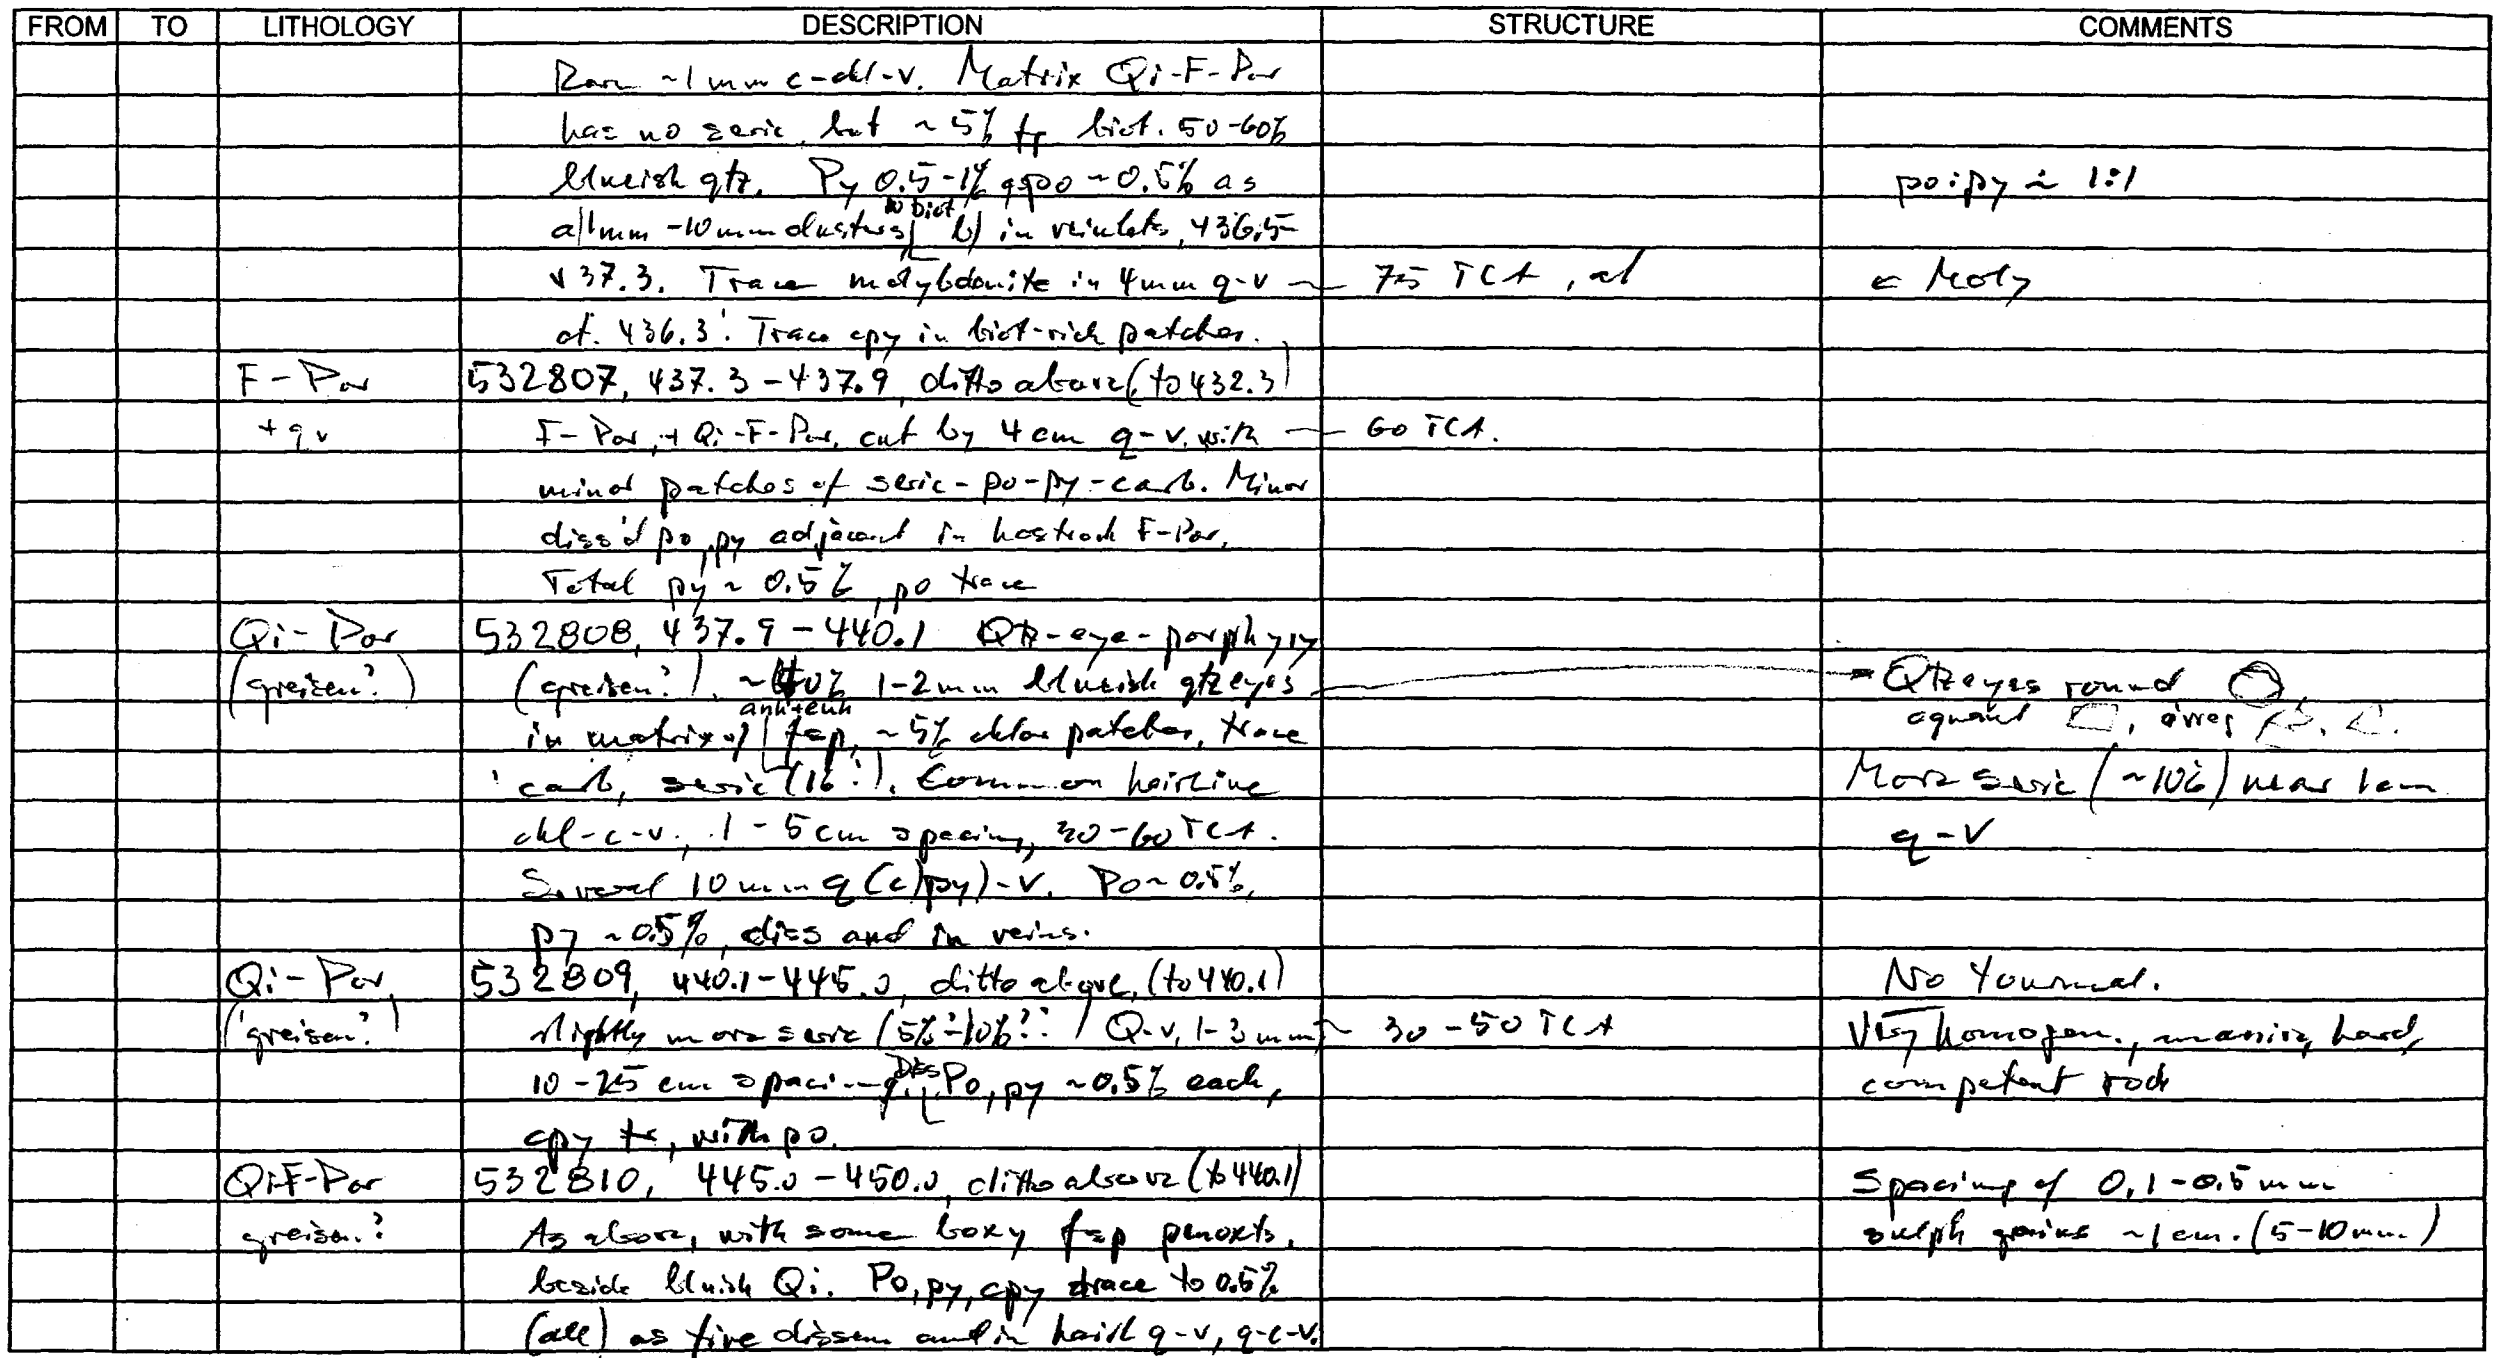 FROM TO LITHOLOGY DESCRIPTION STRUCTURE COMMENTS
Rare ~1mm c-chl-v. Matrix Qi-F-Por
has no seric, but ~5% fg biot. 50-60%
blueish qtz. Py 0.5-1% po ~0.5% as po:py ~ 1:1
to biot
a) 1mm-10mm clusters, b) in veinlets, 436.5-
437.3. Trace molybdenite in 4mm q-v — 75 TCA, at ← Moly
at 436.3! Trace cpy in biot-rich patches.
F-Por 532807, 437.3-437.9, ditto above (to 432.3)
+ qv F-Por, + Qi-F-Por, cut by 4cm q-v, with — 60 TCA.
minor patches of seric-po-py-carb. Minor
diss'd po, py adjacent in hostrock F-Por.
Total py ~ 0.5%, po trace
Qi-Por 532808, 437.9-440.1 Qtz-eye-porphyry
(greisen?) (greisen?). ~40% 1-2mm blueish qtz eyes → Qtz eyes round
anh+euh
in matrix of fsp, ~5% chlor patches, trace equant, irreg
carb, seric (1%?). Common hairline More seric (~10%) near 1cm
chl-c-v., 1-5cm spacing, 30-60 TCA. q-v
Several 10mm q(c)(py)-v. Po ~0.5%,
py ~0.5%, diss and in veins.
Qi-Por, 532809, 440.1-445.0, ditto above, (to 440.1) No Tourmal.
(greisen?) slightly more seric (5%?-10%??) Q-v, 1-3mm ~ 30-50 TCA Very homogen., massive, hard,
Diss
10-25 cm spacing. Po, py ~0.5% each, competent rock
cpy tr, with po.
QiF-Por 532810, 445.0-450.0, ditto above (to 440.1) Spacing of 0.1-0.5mm
greisen? As above, with some boxy fsp penoxts, sulph grains ~1cm. (5-10mm)
beside bluish Qi. Po, py, cpy trace to 0.5%
(all) as fine dissem and in hairl q-v, q-c-v.